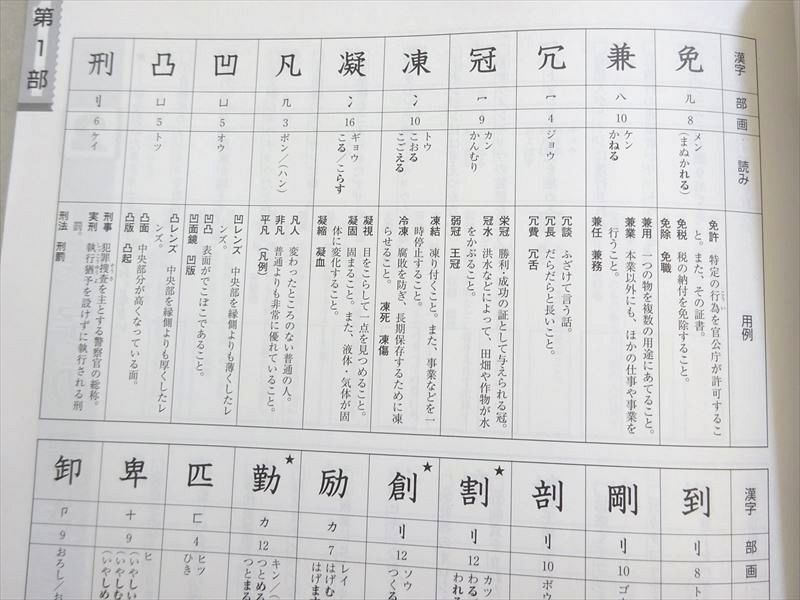 第1部
漢字
部
画
読み
用例
免
儿
8
メン
(まぬかれる)
免許 特定の行為を官公庁が許可するこ
と。また、その証書。
免税 税の納付を免除すること。
免除 免職
兼
八
10
ケン
かねる
兼用 一つの物を複数の用途にあてること。
兼業 本業以外にも、ほかの仕事や事業を
行うこと。
兼任 兼務
冗
冖
4
ジョウ
冗談 ふざけて言う話。
冗長 だらだらと長いこと。
冗費 冗舌
冠
冖
9
カン
かんむり
栄冠 勝利・成功の証として与えられる冠。
冠水 洪水などによって、田畑や作物が水
をかぶること。
弱冠 王冠
凍
冫
10
トウ
こおる
こごえる
凍結 凍り付くこと。また、事業などを一
時停止すること。
冷凍 腐敗を防ぎ、長期保存するために凍
らせること。 凍死 凍傷
凝
冫
16
ギョウ
こる/こらす
凝視 目をこらして一点を見つめること。
凝固 固まること。また、液体・気体が固
体に変化すること。
凝縮 凝血
凡
几
3
ボン/(ハン)
凡人 変わったところのない普通の人。
非凡 普通よりも非常に優れていること。
平凡 (凡例)
凹
凵
5
オウ
凹レンズ 中央部を縁側よりも薄くしたレ
ンズ。
凹凸 表面がでこぼこであること。
凹面鏡 凹版
凸
凵
5
トツ
凸レンズ 中央部を縁側よりも厚くしたレ
ンズ。
凸面 中央部分が高くなっている面。
凸版 凸起
刑
刂
6
ケイ
刑事 犯罪捜査を主とする警察官の総称。
実刑 執行猶予を設けずに執行される刑
罰。
刑法 刑罰
漢字
部
画
到
刂
8
ト
剛
刂
10
剖
刂
10
ボウ
割★
刂
12
カツ
わる
われる
創★
刂
12
ソウ
つくる
励
力
7
レイ
はげむ
はげます
勤★
力
12
キン/(
つとめる
つとまる
匹
匸
4
ヒツ
ひき
卑
十
9
ヒ
(いやしい
(いやしむ
(いやしめ
卸
卩
9
おろし/お